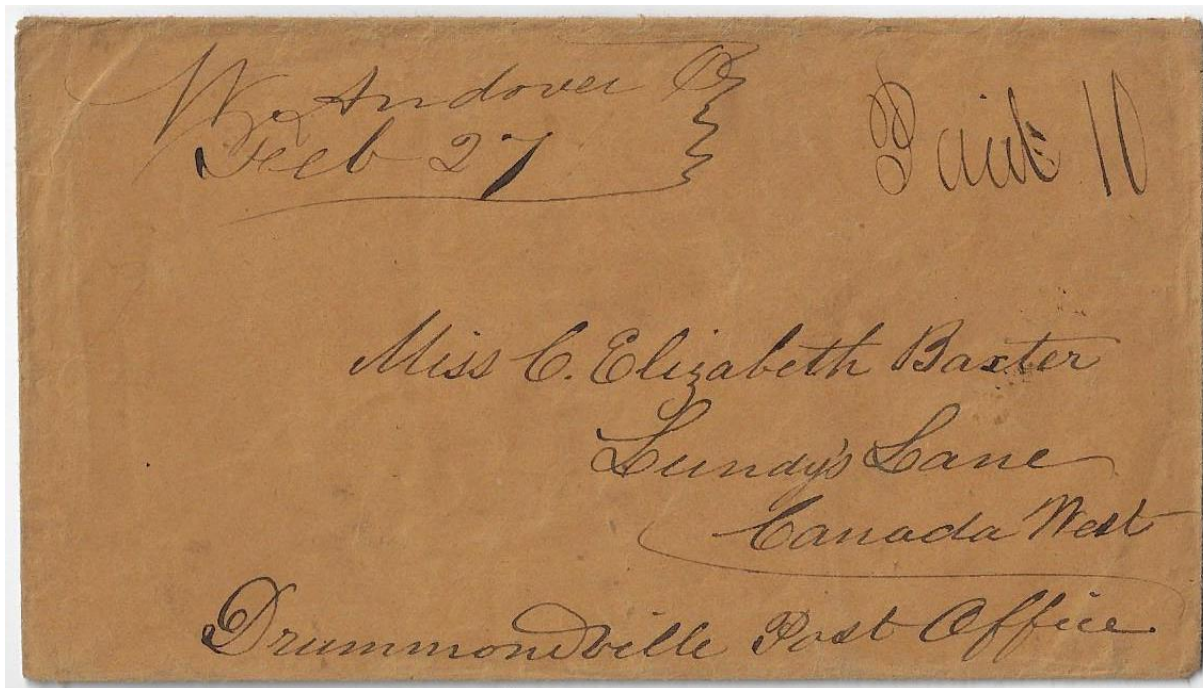 W. Andover O
Feb 27
Paid 10
Miss C. Elizabeth Baxter
Lundy's Lane
Canada West
Drummondville Post Office